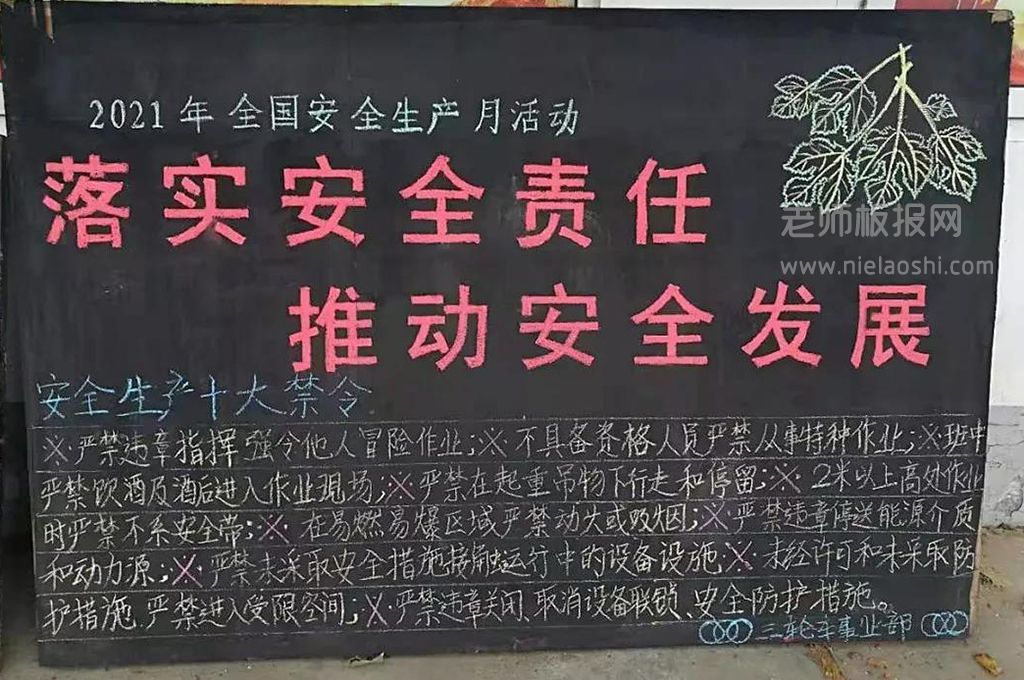 2021年全国安全生产月活动
落实安全责任
老师板报网
www.nielaoshi.com
推动安全发展
安全生产十大禁令
※:严禁违章指挥强令他人冒险作业;※:不具备资格人员严禁从事特种作业;※班中
严禁饮酒及酒后进入作业现场;※:严禁在起重吊物下行走和停留;※:2米以上高处作业
时严禁不系安全带;※:在易燃易爆区域严禁动火或吸烟;※:严禁违章停送能源介质
和动力源;※:严禁未采取安全措施接触运行中的设备设施;※:未经许可和未采取防
护措施,严禁进入受限空间;※:严禁违章关闭、取消设备联锁、安全防护措施。
三轮车事业部